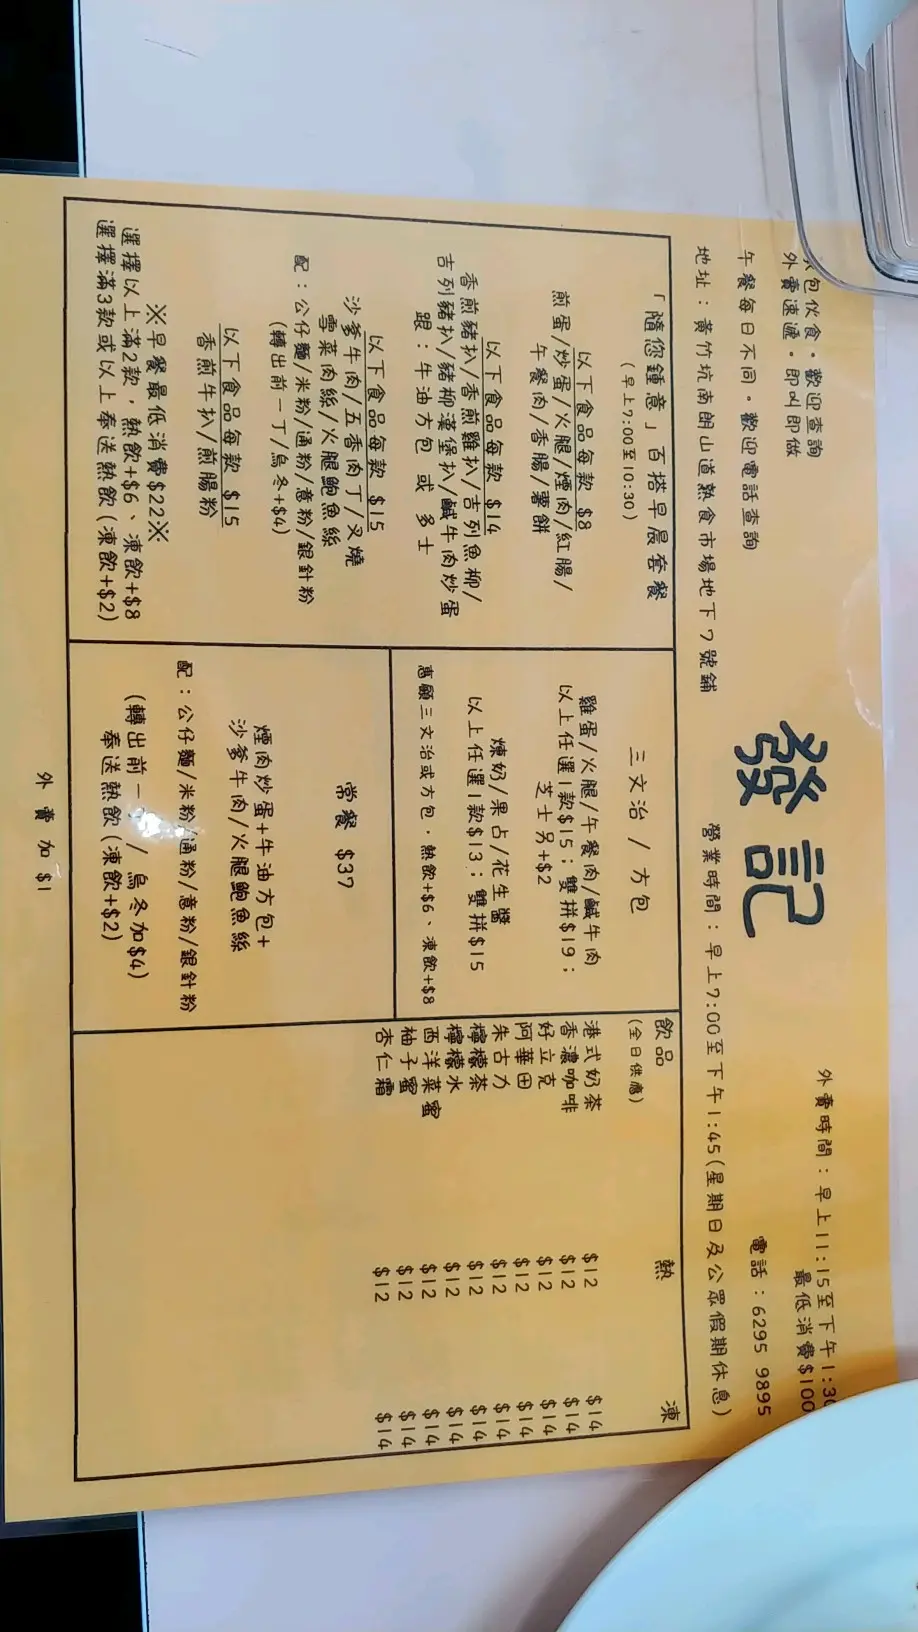 包伙食。歡迎查詢
外賣速遞。即叫即做
午餐每日不同。歡迎電話查詢
地址：黃竹坑南朗山道熟食市場地下7號鋪
發記
外賣時間：早上11:15至下午1:30
最低消費$100
電話：6295 9895
營業時間：早上7:00至下午1:45(星期日及公眾假期休息)
「隨您鍾意」百搭早晨套餐
(早上7:00至10:30)
以下食品每款 $8
煎蛋/炒蛋/火腿/煙肉/紅腸/
午餐肉/香腸/薯餅
以下食品每款 $14
香煎豬扒/香煎雞扒/吉列魚柳/
吉列豬扒/豬柳漢堡扒/鹹牛肉炒蛋
跟：牛油方包 或 多士
以下食品每款 $15
沙爹牛肉/五香肉丁/叉燒
雪菜肉絲/火腿鮑魚絲
配：公仔麵/米粉/通粉/意粉/銀針粉
(轉出前一丁/烏冬+$4)
以下食品每款 $15
香煎牛扒/煎腸粉
※早餐最低消費$22※
選擇以上滿2款，熱飲+$6、凍飲+$8
選擇滿3款或以上奉送熱飲(凍飲+$2)
三文治 / 方包
雞蛋/火腿/午餐肉/鹹牛肉
以上任選1款$15；雙拼$19；
芝士另+$2
煉奶/果占/花生醬
以上任選1款$13；雙拼$15
惠顧三文治或方包，熱飲+$6、凍飲+$8
常餐 $37
煙肉炒蛋+牛油方包+
沙爹牛肉/火腿鮑魚絲
配：公仔麵/米粉/通粉/意粉/銀針粉
(轉出前一 / 烏冬加$4)
奉送熱飲(凍飲+$2)
飲品 熱 凍
(全日供應)
港式奶茶 $12 $14
香濃咖啡 $12 $14
好立克 $12 $14
阿華田 $12 $14
朱古力 $12 $14
檸檬茶 $12 $14
檸檬水 $12 $14
西洋菜蜜 $12 $14
柚子蜜 $12 $14
杏仁霜 $12 $14
外賣加$1